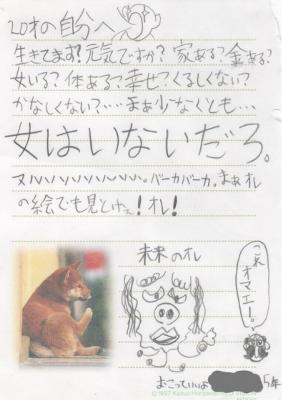 20才の自分へ
生きてます?元気ですか?家ある?金ある?
女いる?体ある?幸せ?くるしくない?
かなしくない?…まぁ少なくとも…
女はいないだろ。
ヌハハハハハハハハ。バーカバーカ。まぁオレ
の絵でも見とけぇ!オレ!
未来のオレ
これオマエー。
おこっていいよ
5年